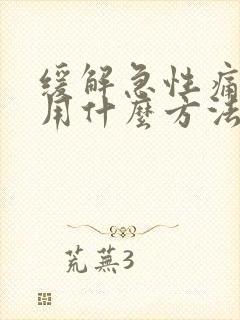 缓解急性痛
用什麼方法
荒蕪3